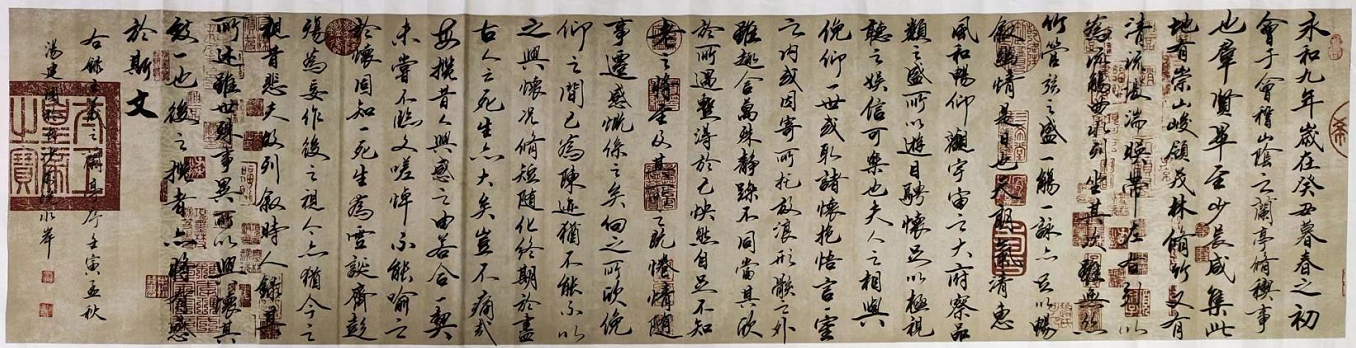 永和九年歲在癸丑暮春之初
會于會稽山陰之蘭亭脩稧事
也羣賢畢至少長咸集此
地有崇山峻領茂林脩竹又有
清流激湍暎帶左右引以
為流觴曲水列坐其次雖無絲
竹管弦之盛一觴一詠亦足以暢
敘幽情是日也天朗氣清惠
風和暢仰觀宇宙之大俯察品
類之盛所以遊目騁懷足以極視
聽之娛信可樂也夫人之相與
俛仰一世或取諸懷抱悟言一室
之内或因寄所托放浪形骸之外
雖趣舍萬殊靜躁不同當其欣
於所遇蹔得於己怏然自足不知
老之將至及其所之既惓情隨
事遷感慨係之矣向之所欣俛
仰之間已為陳迹猶不能不以
之興懷況脩短隨化終期於盡
古人云死生亦大矣豈不痛哉
每攬昔人興感之由若合一契
未嘗不臨文嗟悼不能喻之
於懷固知一死生為虛誕齊彭
殤為妄作後之視今亦猶今之
視昔悲夫故列敘時人錄其
所述雖世殊事異所以興懷其
致一也後之攬者亦將有感
於斯文
右錄王羲之蘭亭序壬寅孟秋
湯建